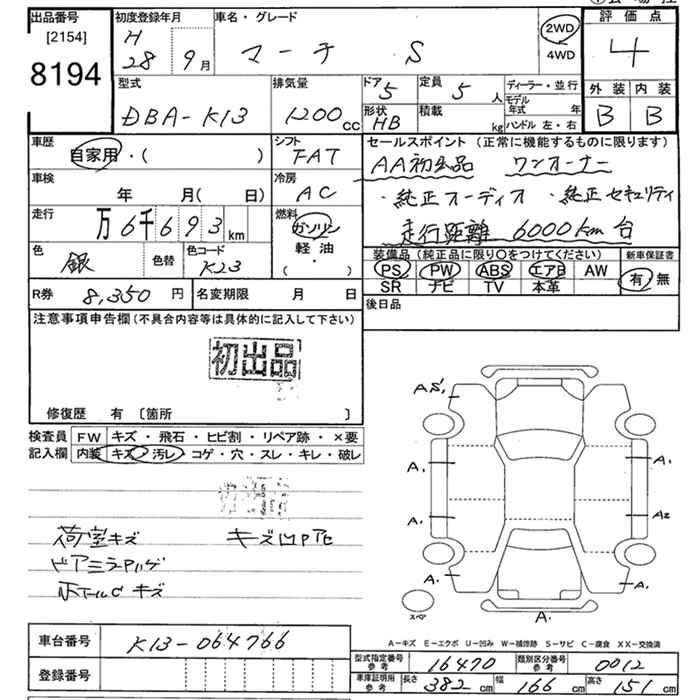 出品番号
[2154]
8194
初度登録年月
H
28 9月
車名・グレード
マーチ S
2WD
4WD
評価点
4
外装 内装
B B
型式
DBA-K13
排気量
1200 cc
ドア 5
形状 HB
定員 5 人
積載 kg
ディーラー・並行
モデル年式 年
ハンドル 左・右
車歴
自家用・( )
シフト
FAT
車検
年 月( 日)
冷房
AC
走行
万6千693km
燃料
ガソリン
軽油
・( )
色
銀
色替
色コード
K23
R券 8,350 円
名変期限 月 日
セールスポイント (正常に機能するものに限ります)
AA初出品 ワンオーナー
・純正オーディオ ・純正セキュリティ
走行距離 6000km台
装備品 (純正品に限り○をつけてください)
PS PW ABS エアB AW
SR ナビ TV 本革
新車保証書
有・無
後日品
注意事項申告欄(不具合内容等は具体的に記入して下さい)
初出品
修復歴 有 [箇所 ]
検査員
記入欄
FW キズ・飛石・ヒビ割・リペア跡・×要
内装 キズ・汚レ・コゲ・穴・スレ・キレ・破レ
荷室キズ
キズ凹P他
ドアミラー
キズ
A.
A.
A.
A.
A2
A.
A.
A.
スペア
A-キズ E-エクボ U-凹み W-補修跡 S-サビ C-腐食 XX-交換済
車台番号
K13-064766
登録番号
型式指定番号
参考
16470
類別区分番号
参考
0012
車庫証明用
参考
長さ 382 cm 幅 166 cm 高さ 151 cm